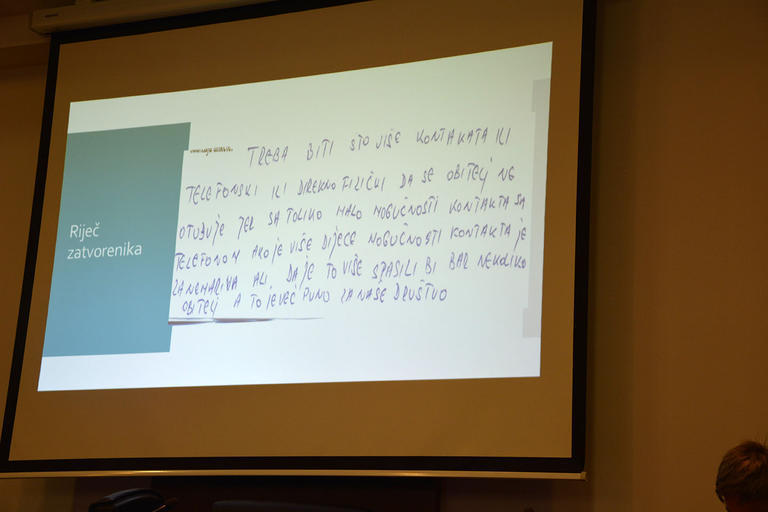 Riječ
zatvorenika
TREBA BITI ŠTO VIŠE KONTAKATA ILI
TELEFONSKI ILI DIREKNO FIZIČKI DA SE OBITELJ NE
OTUĐUJE JER SA TOLIKO MALO MOGUČNOSTI KONTAKTA SA
TELEFONOM AKO JE VIŠE DIJECE MOGUČNOSTI KONTAKTA JE
ZANEMARIVA ALI, DA JE TO VIŠE SPASILI BI BAR NEKOLIKO
OBITELJ A TO JE VEČ PUNO ZA NAŠE DRUŠTVO